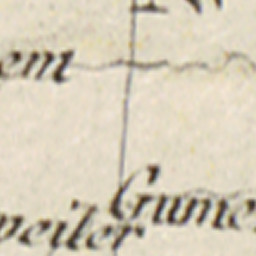 em
Gume
weiler